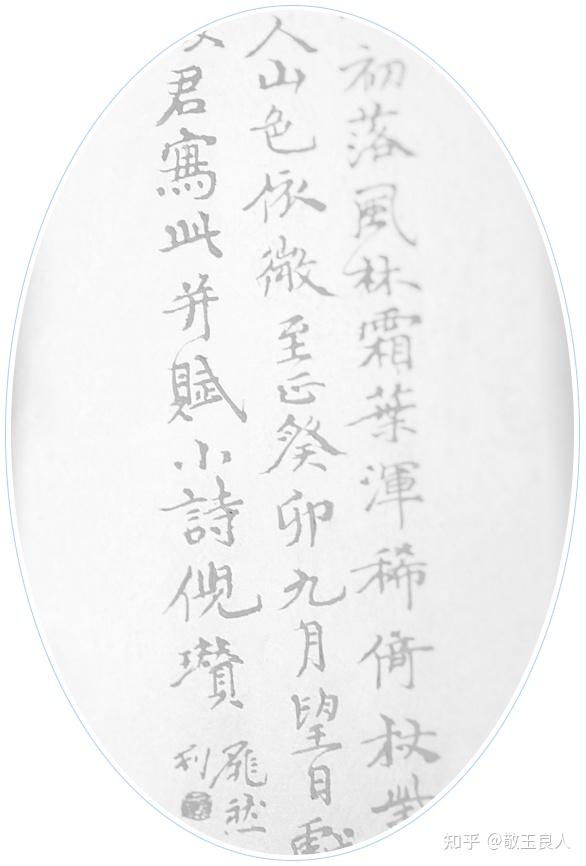 初落風林霜葉渾稀倚杖柴
人山色依微至正癸卯九月望日戲
君寫此并賦小詩倪瓚
然
利
知乎 @敬玉良人